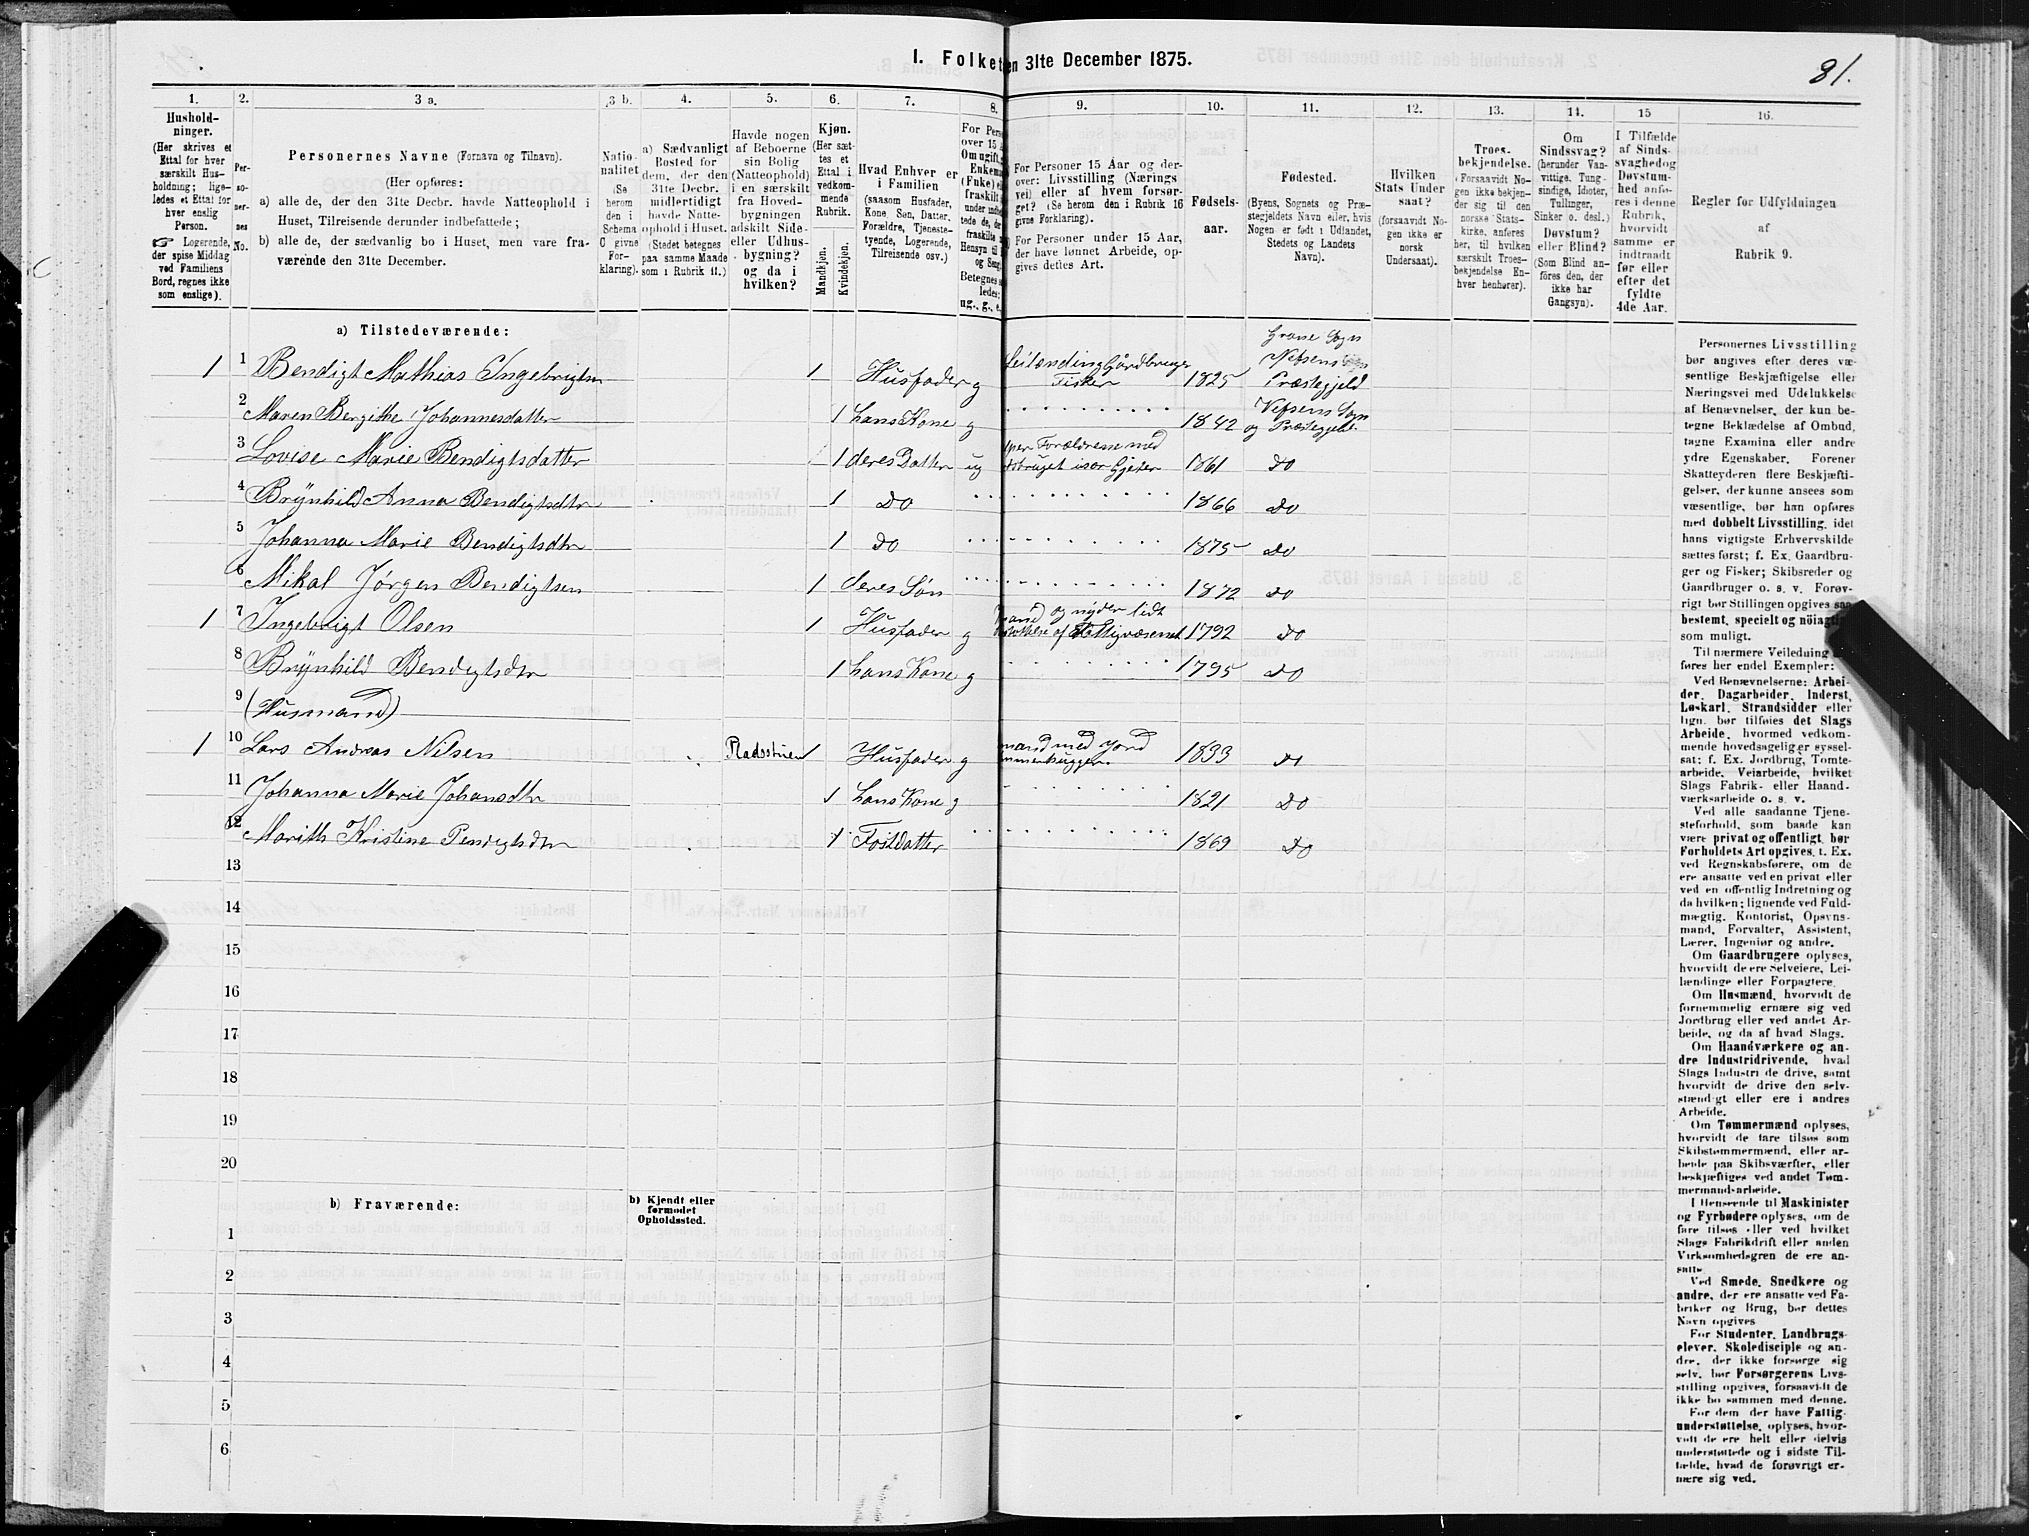 I. Folket en 31te December 1875.
81.
1.
Hushold-
ninger.
(Her skrives et
Ettal for hver
særskilt Hus-
holdning; lige-
ledes et Ettal for
hver enslig
Person.
☞ Logerende,
der spise Middag
ved Familiens
Bord, regnes ikke
som enslige).
2.
Per-
so-
ner-
nes
No.
3 a.
Personernes Navne (Fornavn og Tilnavn).
(Her opføres:
a) alle de, der den 31te Decbr. havde Natteophold i
Huset, Tilreisende derunder indbefattede;
b) alle de, der sædvanlig bo i Huset, men vare fra-
værende den 31te December.
3 b.
Natio-
nalitet
(Se
herom
den i
Schema
C givne
For-
klaring).
4.
a) Sædvanligt
Bosted for
dem, der den
31te Decbr.
midlertidigt
havde Natte-
ophold i Huset.
(Stedet betegnes
paa samme Maade
som i Rubrik 11.)
5.
Havde nogen
af Beboerne
sin Bolig
(Natteophold)
i en særskilt
fra Hoved-
bygningen
adskilt Side-
eller Udhus-
bygning?
og da i
hvilken?
6.
Kjøn.
(Her sæt-
tes et
Ettal i
vedkom-
mende
Rubrik.
Mandkjøn.
Kvindekjøn.
7.
Hvad Enhver er
i Familien
(saasom Husfader,
Kone, Søn, Datter,
Forældre, Tjeneste-
tyende, Logerende,
Tilreisende osv.)
8.
For Pers
over 15 A
Om ugift,
Enkema
(Enke) e
fraskilt
under indb
tede de, de
fraskilte
Hensyn til
og Seng
Betegnes s
ledes:
ug., g., e.
9.
For Personer 15 Aar og der-
over: Livsstilling (Nærings
vei) eller af hvem forsør-
get? (Se herom den i Rubrik 16
givne Forklaring).
For Personer under 15 Aar,
der have lønnet Arbeide, op-
gives dettes Art.
10.
Fødsels-
aar.
11.
Fødested.
(Byens, Sognets og Præ-
stegjeldets Navn eller, hvis
Nogen er født i Udlandet,
Stedets og Landets
Navn).
12.
Hvilken
Stats Under
saat?
(forsaavidt No-
gen ikke er
norsk
Undersaat).
13.
Troes-
bekjendelse.
(Forsaavidt No-
gen ikke bekjen-
der sig til den
norske Stats-
kirke, anføres
her, til hvilken
særskilt Troes-
bekjendelse En-
hver henhører).
14.
Om
Sindssvag?
(herunder Van-
vittige, Tung-
sindige, Idioter,
Tullinger,
Sinker o. desl.)
Døvstum?
eller Blind?
(Som Blind an-
føres den, der
ikke har
Gangsyn).
15
I Tilfælde
af Sinds-
svaghed og
Døvstum-
hed anfø-
res i denne
Rubrik,
hvorvidt
samme er
indtraadt
før eller
efter det
fyldte
4de Aar.
16.
Regler for Udfyldningen
af
Rubrik 9.
a) Tilstedeværende:
1 1 Bendigt Mathias Ingebrigtsen 1 Husfader g Leilending Gårdbruger Fisker 1825 Grane Sogn Vefsens Præstegjeld
2 Maren Bergithe Johannesdatter 1 hans Kone g 1842 Vefsens Sogn og Præstegjeld
3 Lovise Marie Bendigtsdatter 1 deres Datter ug Forældrene med Gjeter 1861 Do
4 Brynhild Anna Bendigtsdtr 1 Do 1866 Do
5 Johanna Marie Bendigtsdtr 1 Do 1875 Do
6 Mikal Jørgen Bendigtsen 1 deres Søn 1872 Do
1 7 Ingebrigt Olsen 1 Husfader g og nyder lidt af Fattigvæsenet 1792 Do
8 Brynhild Bendigtsdtr 1 hans Kone g 1795 Do
9 (Husmand)
1 10 Lars Andreas Nilsen Pladsstuen 1 Husfader g mand med jord 1833 Do
11 Johanna Marie Johansdtr 1 hans Kone g 1821 Do
12 Marith Kristine Pendigtsdtr 1 Fostdatter 1869 Do
13
14
15
16
17
18
19
20
b) Fraværende:
b) Kjendt eller
formodet
Opholdssted.
1
2
3
4
5
6
Personernes Livsstilling
bør angives efter deres væ-
sentlige Beskjæftigelse eller
Næringsvei med Udelukkelse
af Benævnelser, der kun be-
tegne Beklædelse af Ombud,
tagne Examina eller andre
ydre Egenskaber. Forener
Skatteyderen flere Beskjæfti-
gelser, der kunne ansees som
væsentlige, bør han opføres
med dobbelt Livsstilling, idet
hans vigtigste Erhvervskilde
sættes først; f. Ex. Gaardbru-
ger og Fisker; Skibsreder og
Gaardbruger o. s. v. Forøv-
rigt bør Stillingen opgives saa
bestemt, specielt og nøiagtig
som muligt.
Til nærmere Veiledning
føres her endel Exempler:
Ved Benævnelserne: Arbei-
der, Dagarbeider, Inderst,
Løskarl, Strandsidder eller
lign. bør tilføies det Slags
Arbeide, hvormed vedkom-
mende hovedsagelig er syssel-
sat; f. Ex. Jordbrug, Tomte-
arbeide, Veiarbeide, hvilket
Slags Fabrik- eller Haand-
værksarbeide o. s. v.
Ved alle saadanne Tjene-
steforhold, som baade kan
være privat og offentligt, bør
Forholdets Art opgives, t. Ex.
ved Regnskabsførere, om de
ere ansatte ved en privat eller
ved en offentlig Indretning og
da hvilken; lignende ved Fuld-
mægtig, Kontorist, Opsyns-
mand, Forvalter, Assistent,
Lærer, Ingeniør og andre.
Om Gaardbrugere oplyses,
hvorvidt de ere Selveiere, Lei-
lændinge eller Forpagtere.
Om Husmænd, hvorvidt de
fornemmelig ernære sig ved
Jordbrug eller ved andet Ar-
beide, og da af hvad Slags.
Om Haandværkere og an-
dre Industridrivende, hvad
Slags Industri de drive, samt
hvorvidt de drive den selv-
stændigt eller ere i andres
Arbeide.
Om Tømmermænd oplyses,
hvorvidt de fare tilsøs som
Skibstømmermænd, eller ar-
beide paa Skibsværfter, eller
beskjæftiges ved andet Tøm-
mermandsarbeide.
I Henseende til Maskinister
og Fyrbødere oplyses, om de
fare tilsøs eller ved hvilket
Slags Fabrikdrift eller anden
Virksomhedsgren de ere an-
satte.
Ved Smede, Snedkere og
andre, der ere ansatte ved Fa-
briker og Brug, bør dettes
Navn opgives
For Studenter, Landbrugs-
elever, Skoledisciple og an-
dre, der ikke forsørge sig
selv, bør Forsørgerens Livs-
stilling opgives, forsaavidt de
ikke bo sammen med denne.
For dem, der have Fattig-
understøttelse, oplyses, hvor-
vidt de ere helt eller delvis
understøttede og i sidste Til-
fælde, hvad de forøvrigt er-
nære sig ved.